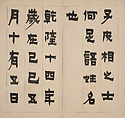 子皮相之士
何足語姓名
乾隆十四年
歲在己巳五
月十有五日